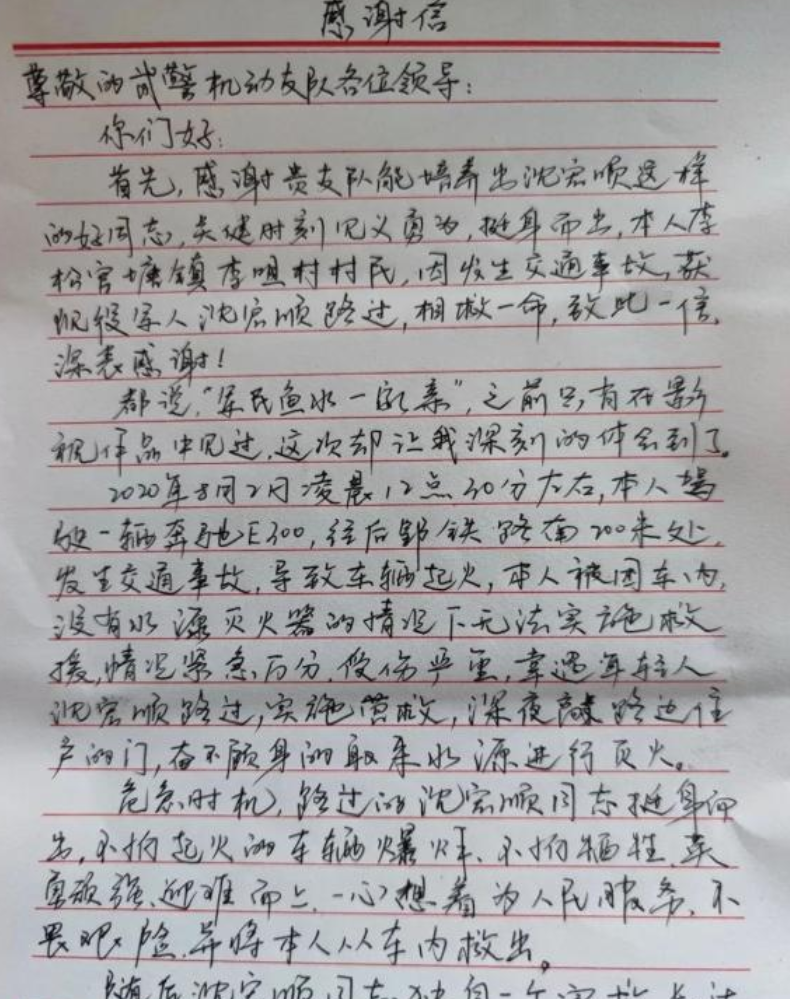 感谢信
尊敬的武警机动支队各位领导:
你们好:
首先,感谢贵支队能培养出沈宏顺这样
的好同志,关健时刻见义勇为,挺身而出,本人李
松官塘镇李咀村村民,因发生交通事故,获
现役军人沈宏顺路过,相救一命,致此一信,
深表感谢!
都说,“军民鱼水一家亲”,之前只有在影
视作品中见过,这次却让我深刻的体会到了。
2020年8月2日凌晨12点30分左右,本人驾
驶一辆奔驰E300,往后郢铁路南200米处,
发生交通事故,导致车辆起火,本人被困车内,
没有水源灭火器的情况下无法实施救
援,情况紧急万分,受伤严重,幸遇年轻人
沈宏顺路过,实施营救,深夜敲路边住
户的门,奋不顾身的取来水源进行灭火。
危急时机,路过的沈宏顺同志挺身而
出,不怕起火的车辆爆炸、不怕牺牲、英
勇顽强、迎难而上、一心想着为人民服务、不
畏艰险、并将本人从车内救出。
随后沈宏顺同志独自一个